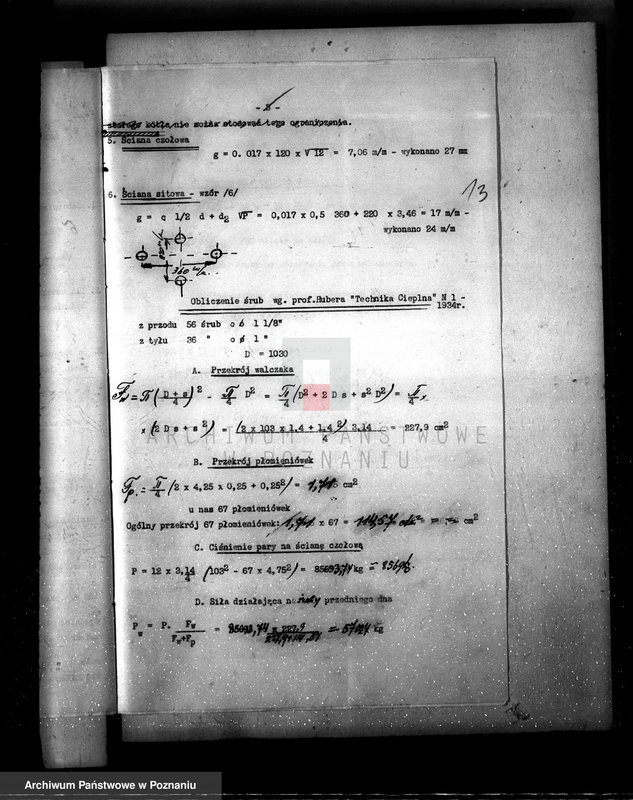 - 3 -
kotła nie można stosować tego ograniczenia.
5. Ściana czołowa
g = 0. 017 x 120 x √ 12 = 7,06 m/m - wykonano 27 mm
13
6. Ściana sitowa - wzór /6/
g = c 1/2 d + d2 VP = 0,017 x 0,5 360 + 220 x 3,46 = 17 m/m -
wykonano 24 m/m
360 m/m.
Obliczenie śrub wg. prof.Hubera "Technika Cieplna" N 1 -
1934r.
z przodu 56 śrub o ø 1 1/8"
z tyłu 36 " o ø 1 "
D = 1030
A. Przekrój walczaka
Fw = π (D + s / 4)² - π/4 D² = π/4 (D² + 2 D s + s² D²) = π/4 x
x (2 D s + s²) = (2 x 103 x 1.4 + 1.4²) 3.14 / 4 = 227,9 cm²
B. Przekrój płomieniówek
Fp. = π/4 (2 x 4,25 x 0,25 + 0,25²) = 1,71 cm²
u nas 67 płomieniówek
Ogólny przekrój 67 płomieniówek: 1,71 x 67 = 114,57 cm² cm²
C. Ciśnienie pary na ścianę czołową
P = 12 x 3,14/4 (103² - 67 x 4,75²) = 85693,74 kg
D. Siła działająca na przedniego dna
Pw = P. Fw / Fw+Fp = 85693,74 x 227,9 / 227,9+114,57 = kg
ARCHIWUM PAŃSTWOWE
W POZNANIU
Archiwum Państwowe w Poznaniu